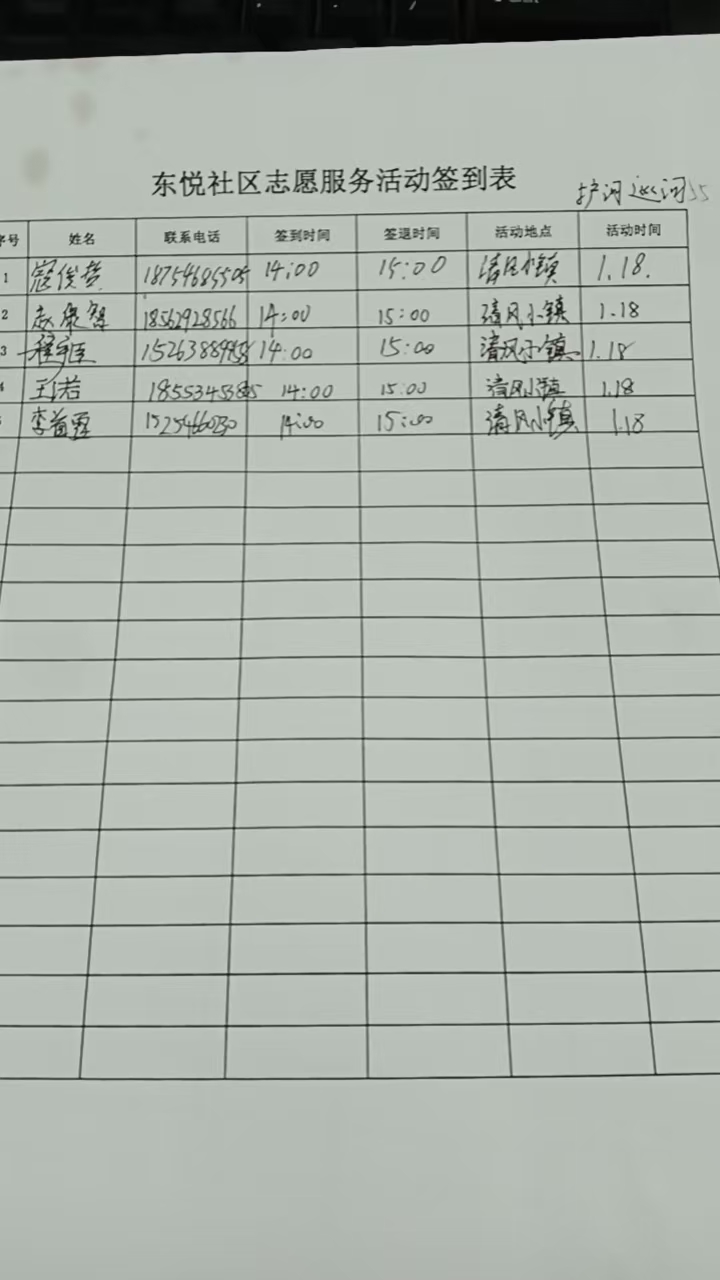 东悦社区志愿服务活动签到表
护河巡河
序号 姓名 联系电话 签到时间 签退时间 活动地点 活动时间
1 寇俊哲 18754685505 14:00 15:00 清风小镇 1.18.
2 赵康智 18562928566 14:00 15:00 清风小镇 1.18
3 14:00 15:00 清风小镇 1.18
4 王诺 14:00 15:00 清风小镇 1.18
李 15254660230 14:00 15:00 清风小镇 1.18